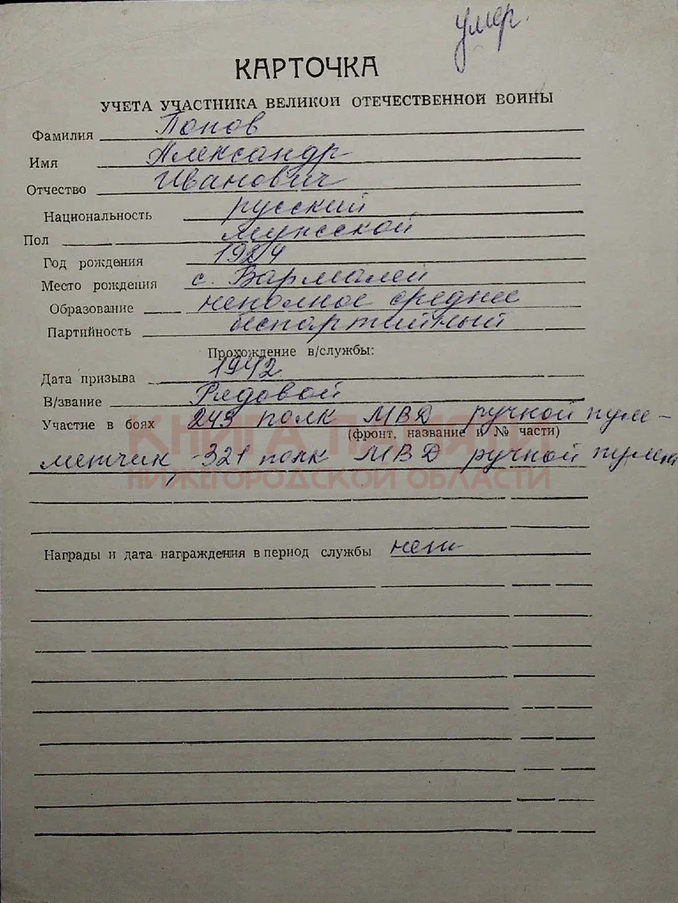 умер.
КАРТОЧКА
УЧЕТА УЧАСТНИКА ВЕЛИКОЙ ОТЕЧЕСТВЕННОЙ ВОЙНЫ
Фамилия Попов
Имя Александр
Отчество Иванович
Национальность русский
Пол мужской
Год рождения 1924
Место рождения с. Вармалей
Образование неполное среднее
Партийность беспартийный
Прохождение в/службы:
Дата призыва 1942
В/звание Рядовой
Участие в боях 243 полк МВД ручной пуле-
(фронт, название и № части)
КНИГА ПАМЯТИ
метчик, -321 полк МВД ручной пулем
НИЖЕГОРОДСКОЙ ОБЛАСТИ
Награды и дата награждения в период службы нет